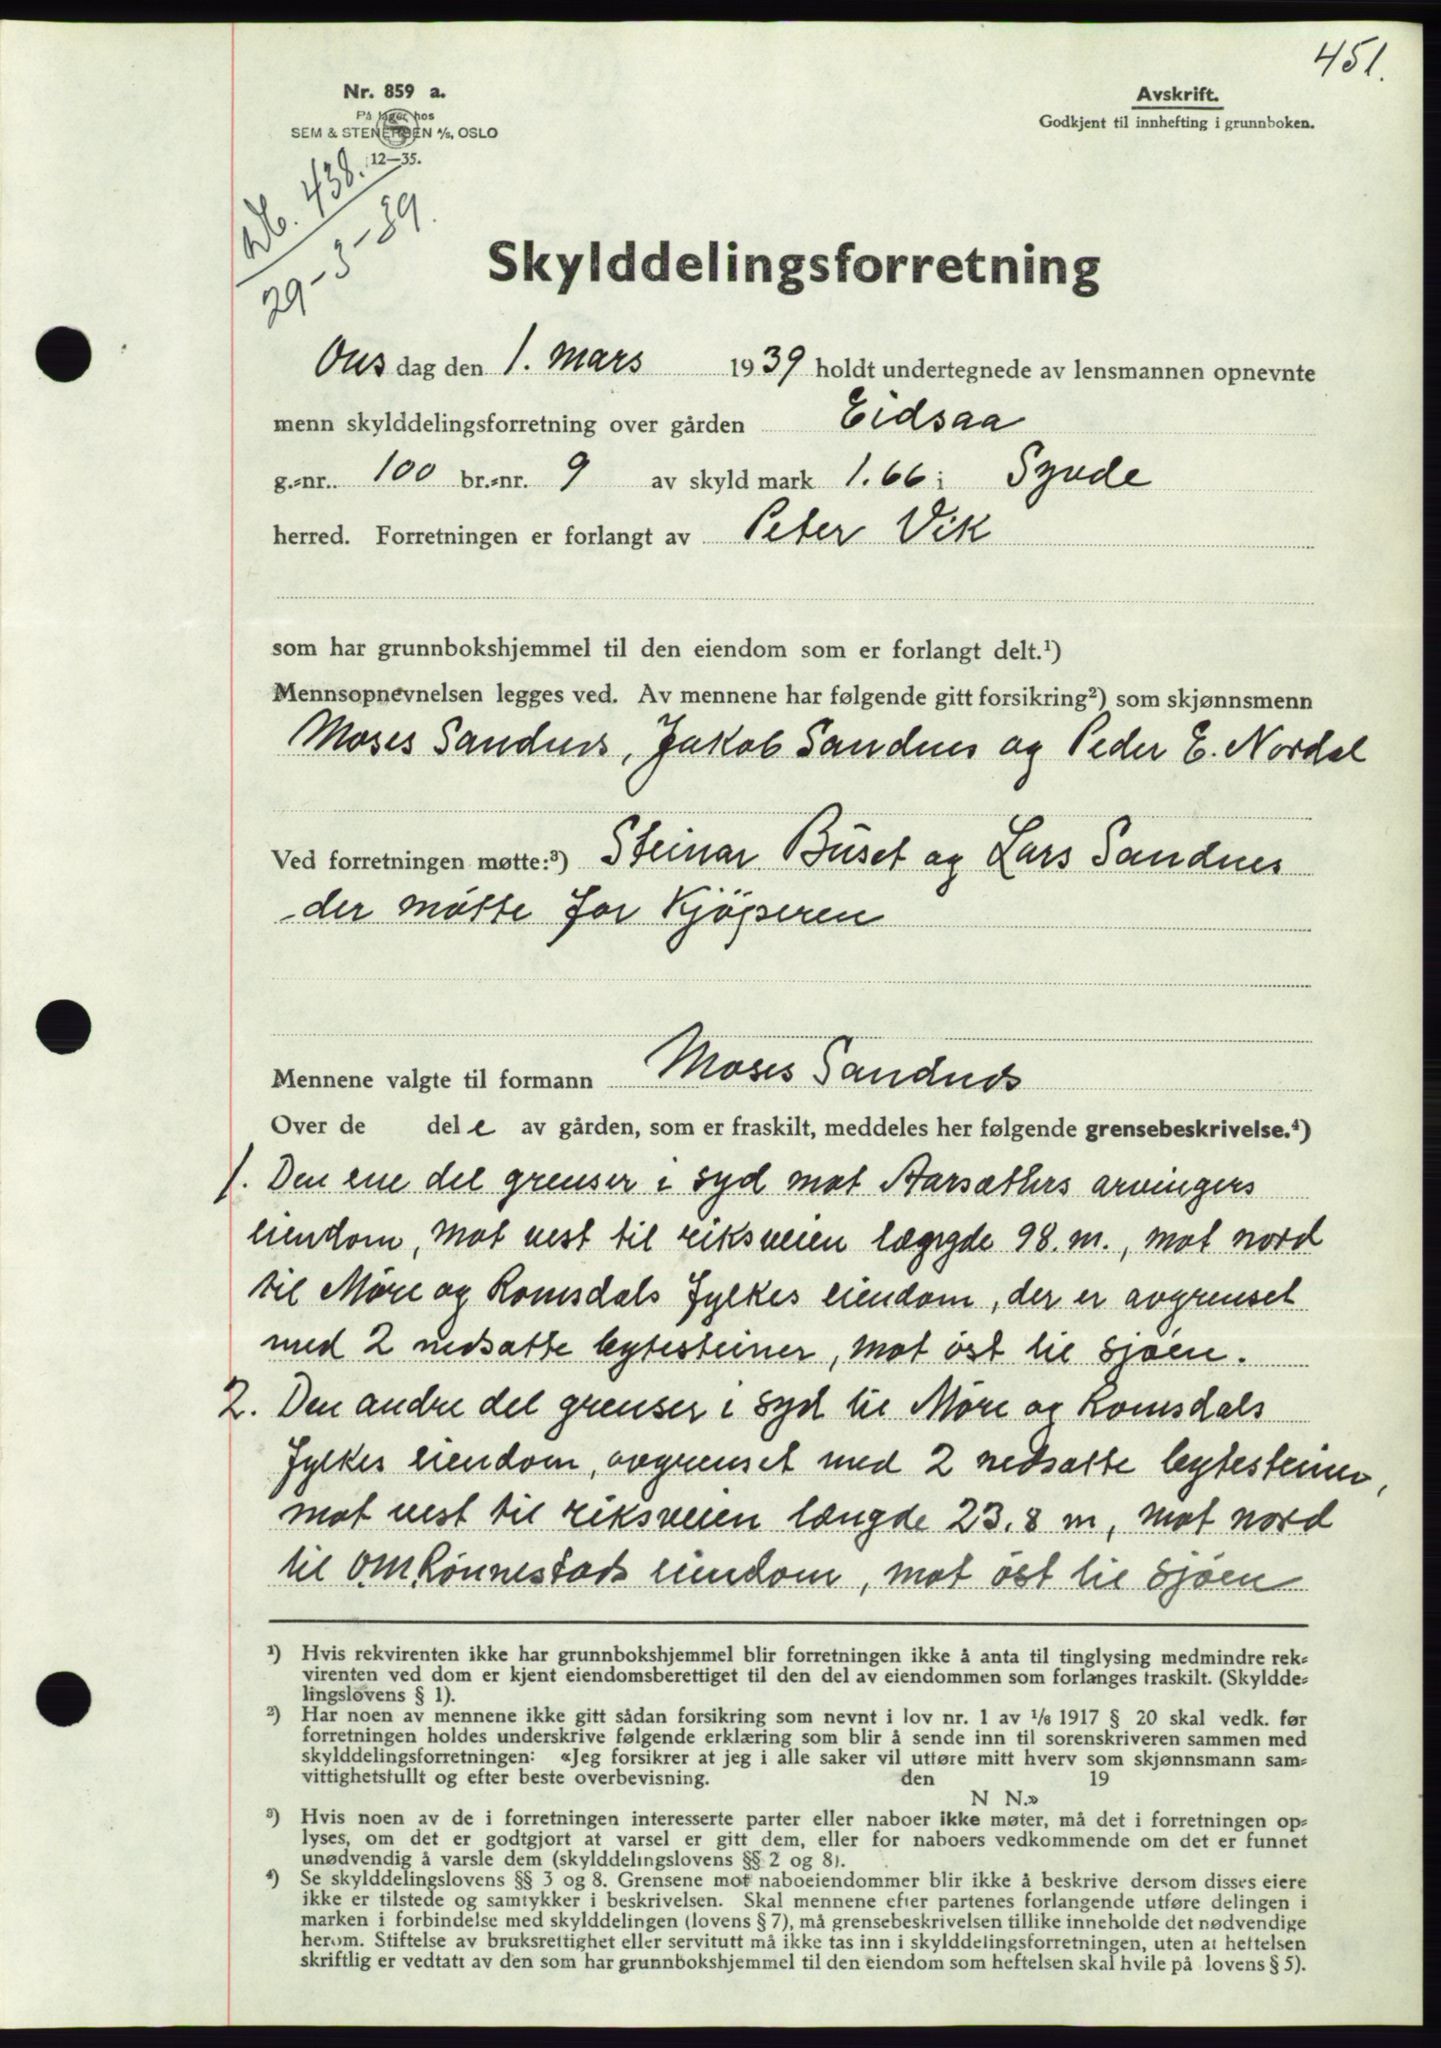 451.
Nr. 859 a.
På lager hos
SEM & STENERSEN A/S, OSLO
12—35.
Avskrift.
Godkjent til innhefting i grunnboken.
438.
29-3-39.
Skylddelingsforretning
Ons dag den 1. mars 1939 holdt undertegnede av lensmannen opnevnte
menn skylddelingsforretning over gården Eidsaa
g.-nr.. 100 br.-nr. 9 av skyld mark 1.66 i Syvde
herred. Forretningen er forlangt av Peter Vik
som har grunnbokshjemmel til den eiendom som er forlangt delt.¹)
Mennsopnevnelsen legges ved. Av mennene har følgende gitt forsikring²) som skjønnsmenn
Moses Sandnes, Jakob Sandnes og Peder E. Nordal
Ved forretningen møtte:³) Steinar Buset og Lars Sandnes
der møtte for Kjöperen
Mennene valgte til formann Moses Sandnes
Over de del e av gården, som er fraskilt, meddeles her følgende grensebeskrivelse.⁴)
1. Den ene del grenser i syd mot Aarsæthers arvingers
eiendom, mot vest til riksveien længde 98. m., mot nord
til Möre og Romsdals fylkes eiendom, der er avgrenset
med 2 nedsatte bytesteiner, mot öst til sjöen.
2. Den andre del grenser i syd til Möre og Romsdals
fylkes eiendom, avgrenset med 2 nedsatte bytesteiner,
mot vest til riksveien længde 23,8 m, mot nord
til O.M. Rönnestads eiendom, mot öst til sjöen
¹) Hvis rekvirenten ikke har grunnbokshjemmel blir forretningen ikke å anta til tinglysing medmindre rek-
virenten ved dom er kjent eiendomsberettiget til den del av eiendommen som forlanges fraskilt. (Skyldde-
lingslovens § 1).
²) Har noen av mennene ikke gitt sådan forsikring som nevnt i lov nr. 1 av ¹/₆ 1917 § 20 skal vedk. før
forretningen holdes underskrive følgende erklæring som blir å sende inn til sorenskriveren sammen med
skylddelingsforretningen: «Jeg forsikrer at jeg i alle saker vil utføre mitt hverv som skjønnsmann sam-
vittighetsfullt og efter beste overbevisning. den 19
N N.»
³) Hvis noen av de i forretningen interesserte parter eller naboer ikke møter, må det i forretningen op-
lyses, om det er godtgjort at varsel er gitt dem, eller for naboers vedkommende om det er funnet
unødvendig å varsle dem (skylddelingslovens §§ 2 og 8).
⁴) Se skylddelingslovens §§ 3 og 8. Grensene mot naboeiendommer blir ikke å beskrive dersom disses eiere
ikke er tilstede og samtykker i beskrivelsen. Skal mennene efter partenes forlangende utføre delingen i
marken i forbindelse med skylddelingen (lovens § 7), må grensebeskrivelsen tillike inneholde det nødvendige
herom. Stiftelse av bruksrettighet eller servitutt må ikke tas inn i skylddelingsforretningen, uten at heftelsen
skriftlig er vedtatt av den som har grunnbokshjemmel til den eiendom som heftelsen skal hvile på lovens § 5).